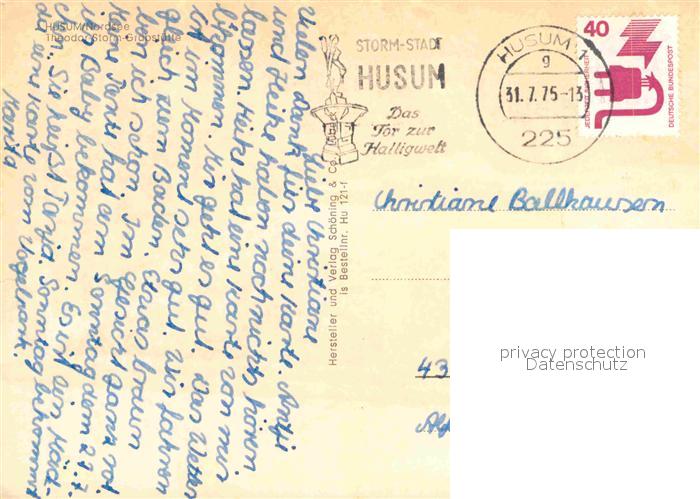 HUSUM/Nordsee
Theodor-Storm-Grabstätte
Liebe Christiane
Vielen Dank für deine Karte. Antje
und Heike haben noch nichts hören
lassen. Heike hat eine Karte von mir
bekommen. Mir geht es gut. Das Wetter
ist im Moment sehr gut. Wir fahren
zum Baden. Etwas braun
bin ich schon. Im Gesicht ganz rot
Tante hat am Sonntag dem 27.7.
ein Baby bekommen. Es ist ein Mäd-
chen. Sie heißt Tanja. Sonntag bekommst
du eine Karte vom Vogelpark.
Hersteller und Verlag Schöning & Co., Lübeck
is Bestellnr. Hu 121-f
STORM-STADT
HUSUM
Das
Tor zur
Halligwelt
HUSUM 1
g
31.7.75-13
225
40
JEDERZEIT SICHERHEIT
DEUTSCHE BUNDESPOST
Christiane Ballhausen
43
privacy protection
Datenschutz